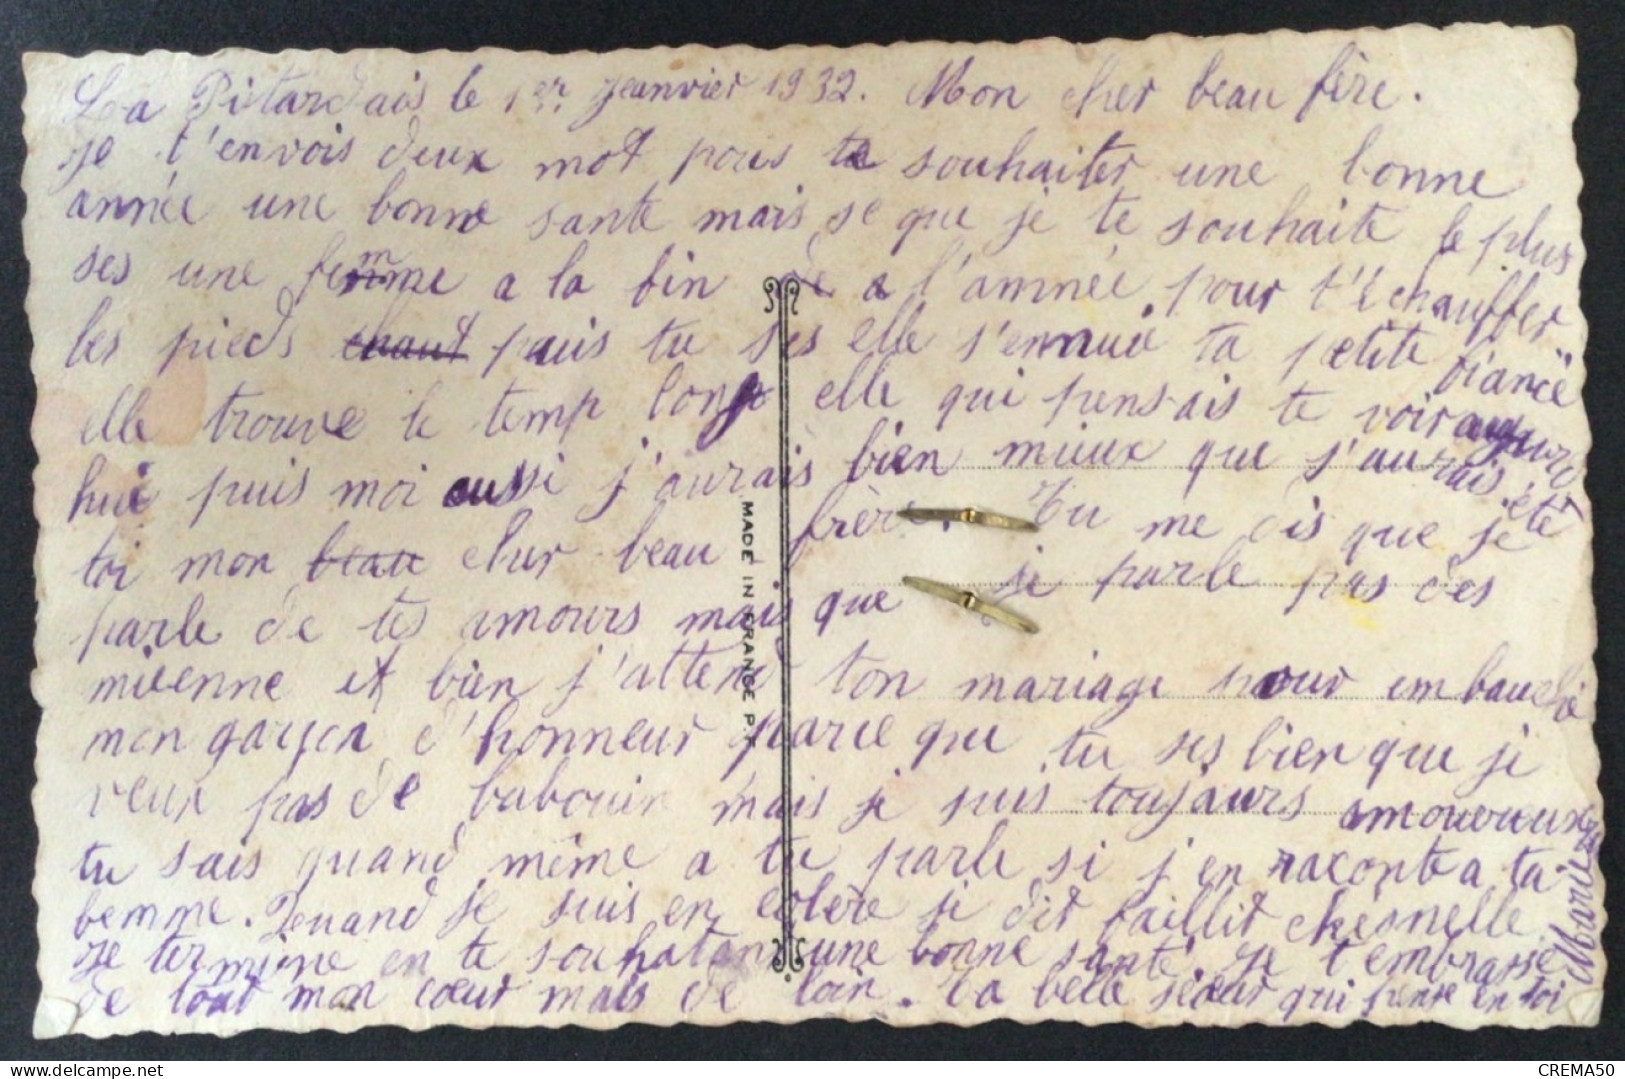 La Pitardais le 1er Jeanvier 1932. Mon cher beau fère.
Je t'envois deux mot pour te souhaiter une bonne
année une bonne sante mais se que je te souhaite le plus
ses une femme a la fin de a l'amnée pour t'échauffer
les pieds chaut puis tu ses elle s'ennuie ta petite fiancé
elle trouve le temp long elle qui pensais te voir aujourd
hui puis moi aussi j'aurais bien mieux que j'aurais été
toi mon beau cher beau frère. Tu me dis que je te
parle de tes amours mais que je parle pas des
mienne et bien j'attend ton mariage pour embauché
mon garçon d'honneur parce que tu ses bien que je
veux pas de babouin mais je suis toujours amoureuse
tu sais quand même a tu parle si j'en raconte a ta
femme. Quand je suis en colère je dit
Je termine en te souhatant une bonne santé je t'embrasse
de tout mon cœur mais de loin. Ta belle sœur qui pense en toi
Marie
MADE IN FRANCE
delcampe.net
CREMA50